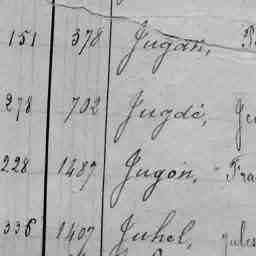 151 378 Jugan,
278 702 Jugdé,
228 1487 Jugon, Fra
336 1407 Juhel, Jules